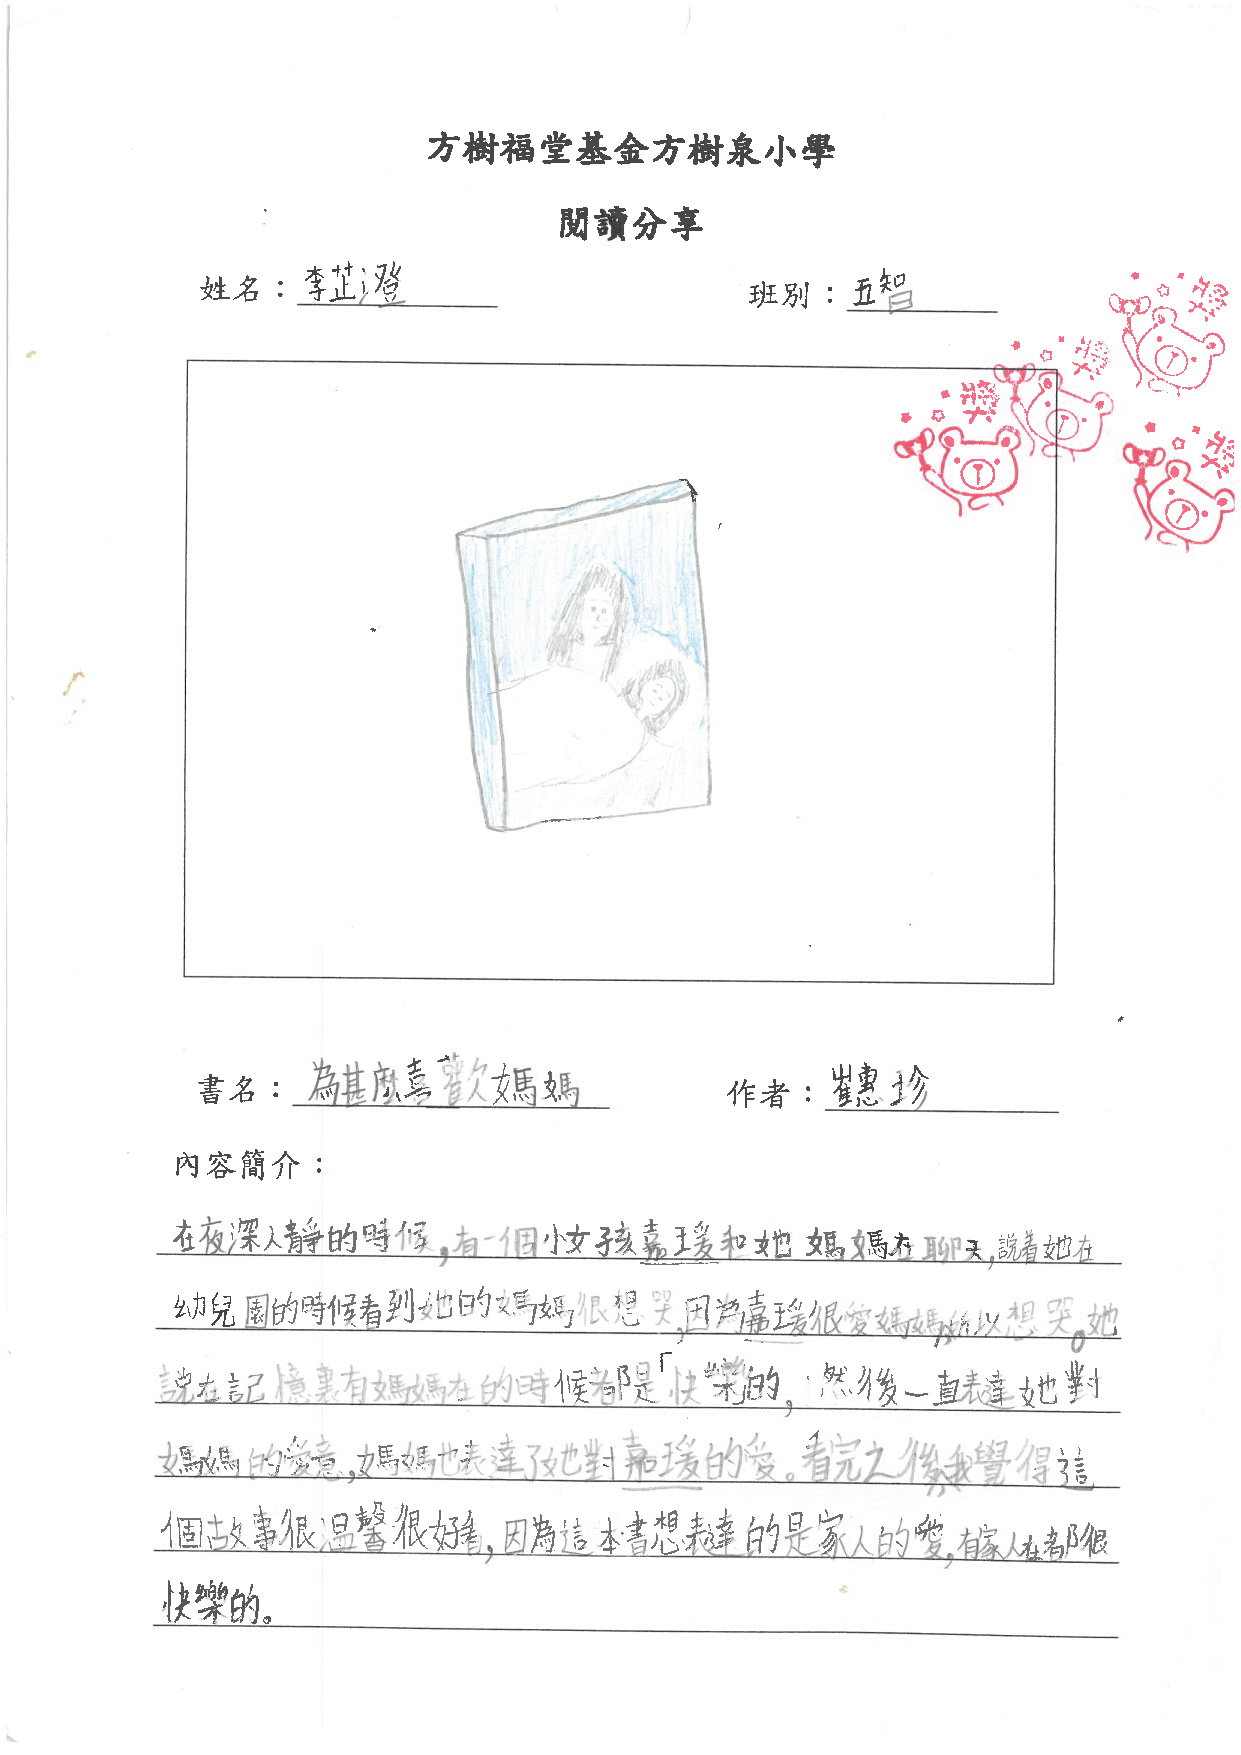 方樹福堂基金方樹泉小學
閱讀分享
姓名：李芷澄 班別：五智
獎
獎
獎
獎
書名：為甚麼喜歡媽媽 作者：崔惠珍
內容簡介：
在夜深人靜的時候，有一個小女孩嘉瑗和她媽媽在聊天，說着她在
幼兒園的時候看到她的媽媽很想哭，因為嘉瑗很愛媽媽，所以想哭。她
說在記憶裏有媽媽在的時候都是「快樂的，然後一直表達她對
媽媽的愛意，媽媽也表達了她對嘉瑗的愛。看完之後，我覺得這
個故事很溫馨很好看，因為這本書想表達的是家人的愛，有家人在都很
快樂的。